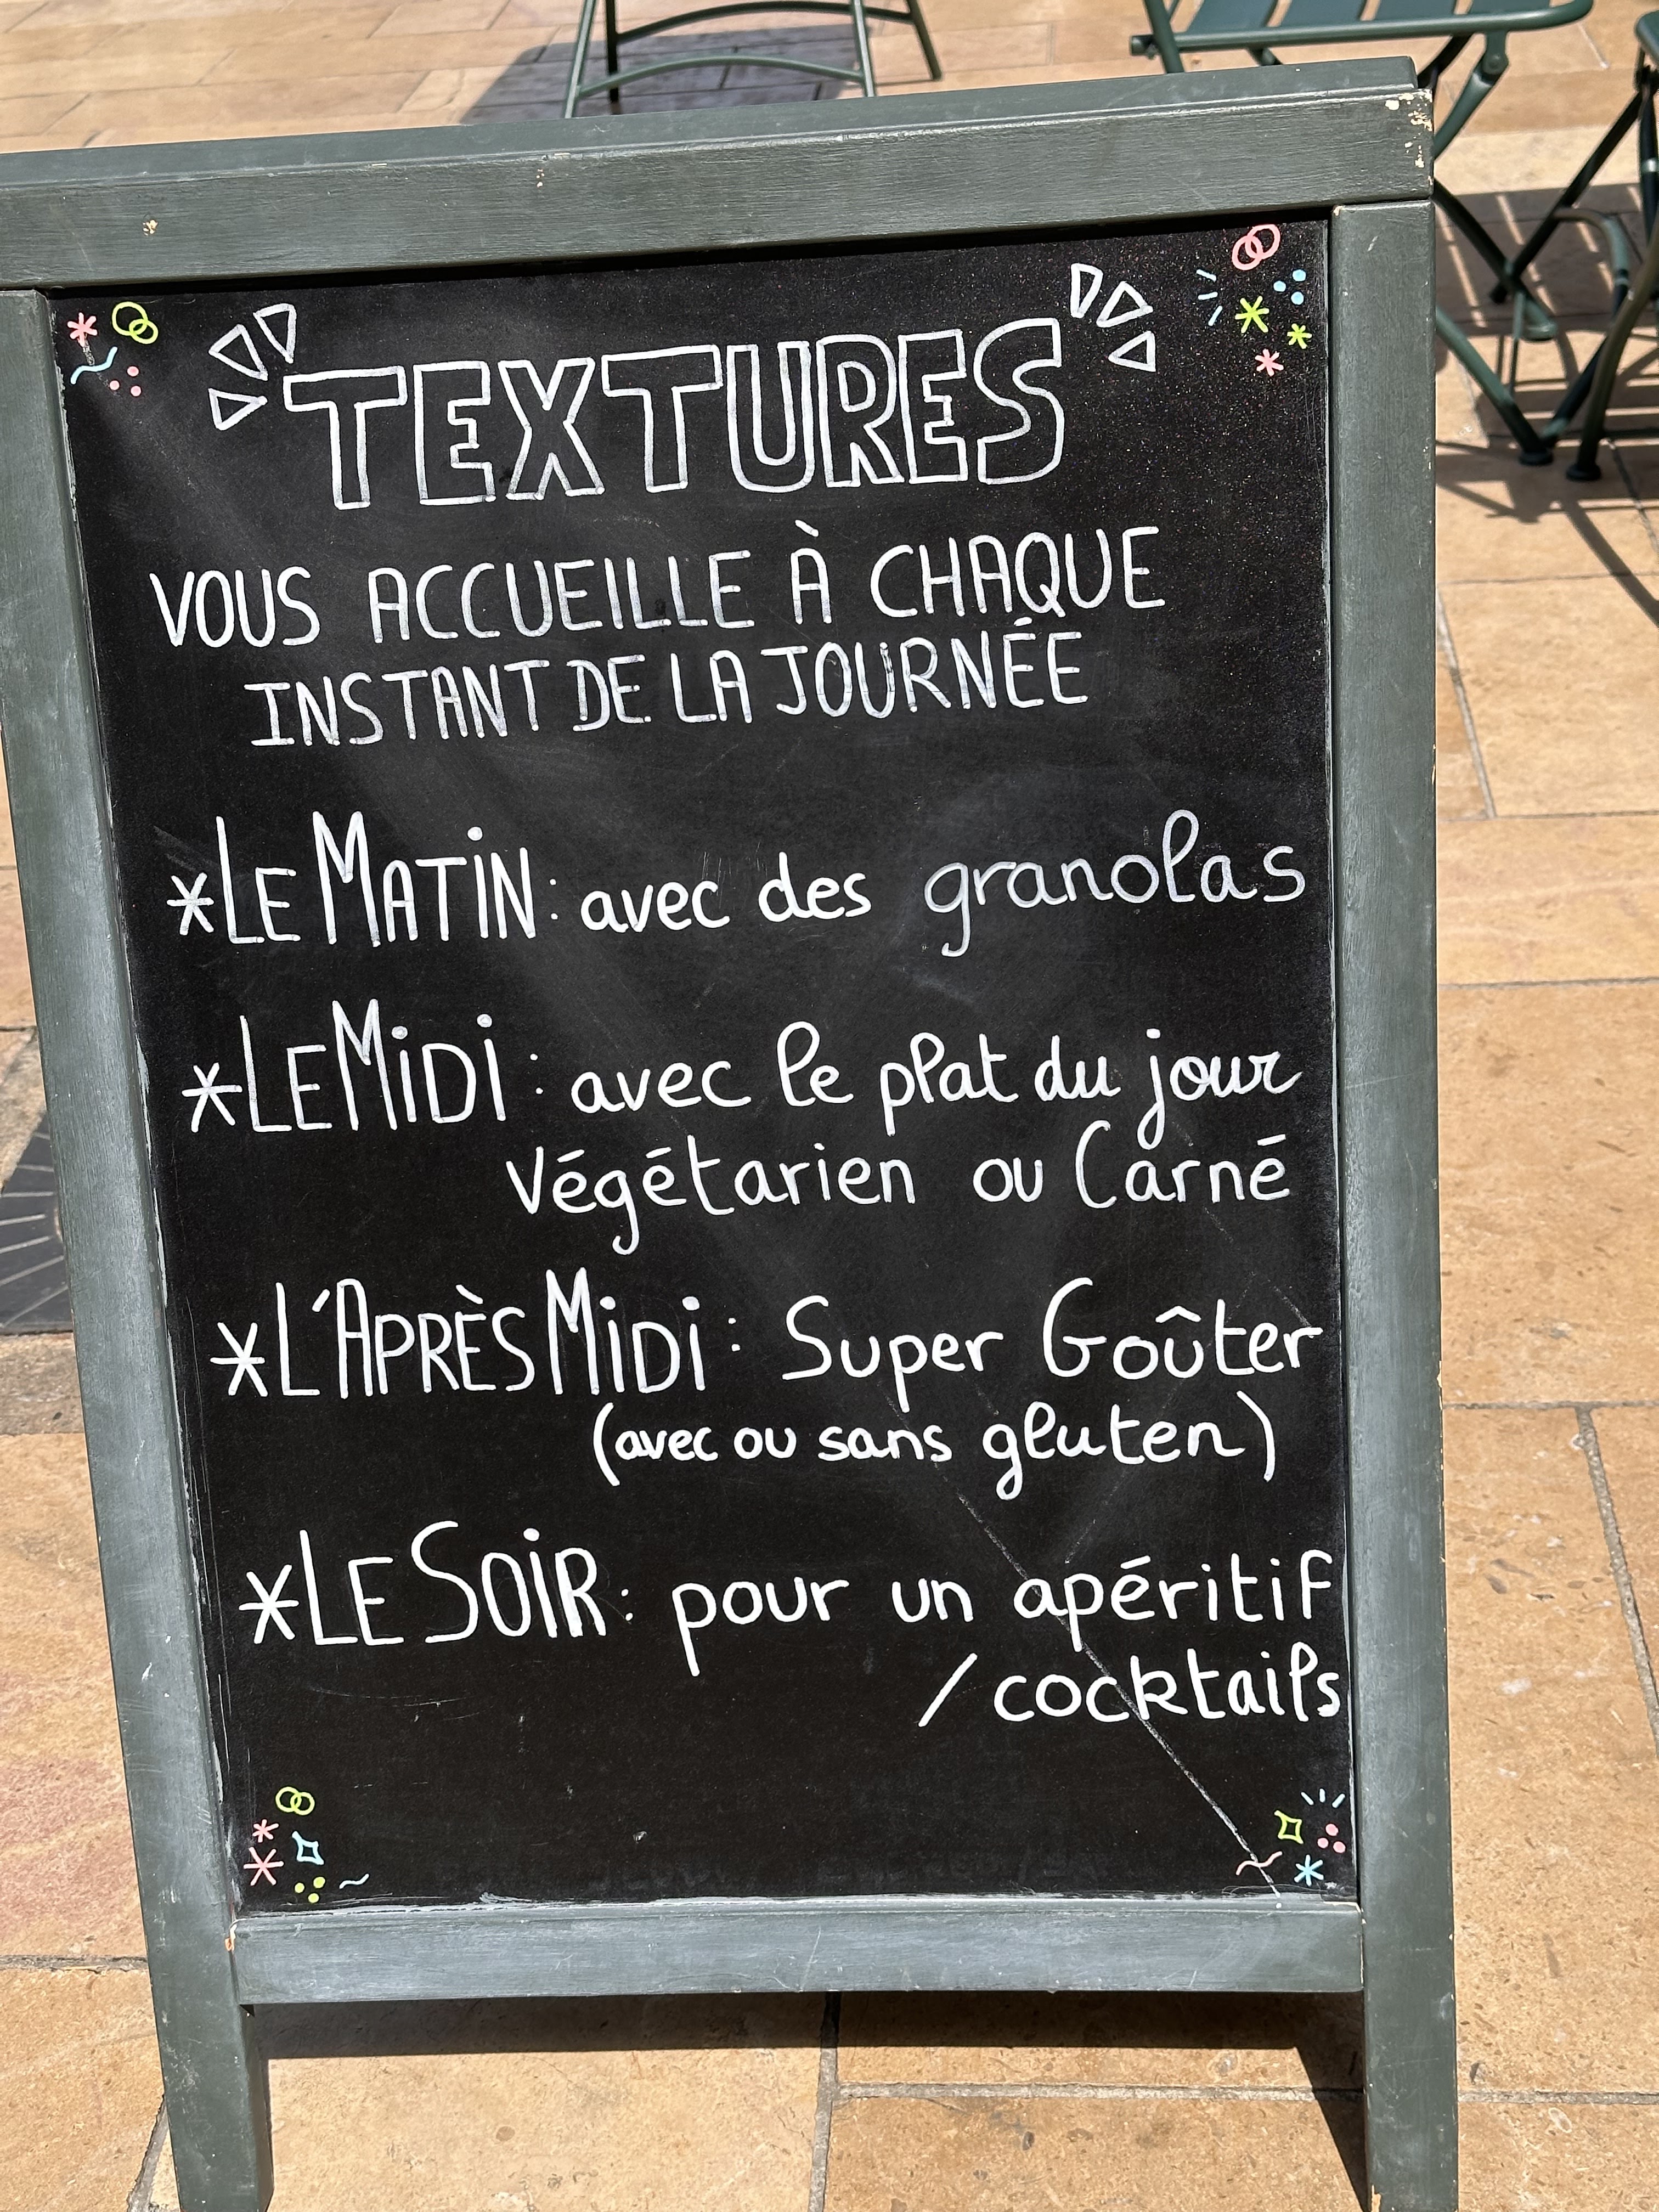 TEXTURES
VOUS ACCUEILLE À CHAQUE
INSTANT DE LA JOURNÉE
*LE MATIN: avec des granolas
*LE MIDI: avec le plat du jour
Végétarien ou Carné
*L'APRÈS MIDI: Super Goûter
(avec ou sans gluten)
*LE SOIR: pour un apéritif
/cocktails